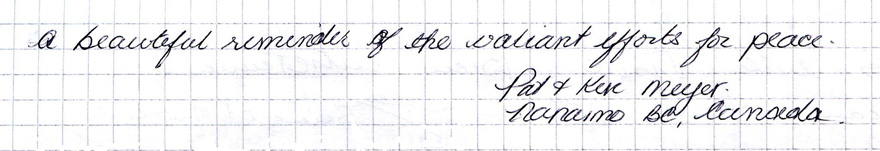 a beautiful reminder of the valiant efforts for peace.
Pat & Ken Meyer.
Nanaimo BC, Canada.